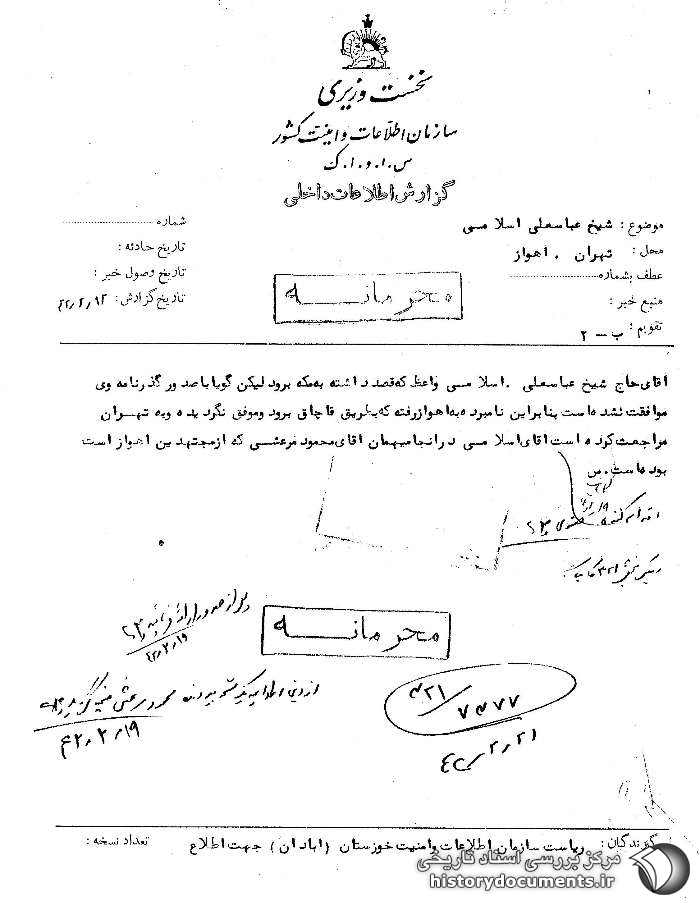 نخست وزیری
سازمان اطلاعات و امنیت کشور
س.ا.و.ا.ک
گزارش اطلاعات داخلی
موضوع : شیخ عباسعلی اسلامی
شماره
محل : تهران . اهواز
تاریخ حادثه :
عطف بشماره
تاریخ وصول خبر :
منبع خبر :
تاریخ گزارش : ۴۲٫۲٫۱۲
تقویم : ب - ۲
محرمانه
آقای حاج شیخ عباسعلی . اسلامی واعظ که قصد داشته به مکه برود لیکن گویا با صدور گذرنامه وی
موافقت نشده است بنابراین نامبرده به اهواز رفته که بطریق قاچاق برود وموفق نگردیده وبه تهران
مراجعت کرده است آقای اسلامی در آنجا میهمان آقای محمود مرعشی که از مجتهدین اهواز است
بوده است.س
محرمانه
۴۲٫۲٫۱۹
۴۲٫۲٫۱۹
۴۲٫۲٫۲۱
گیرندگان : ریاست سازمان اطلاعات وامنیت خوزستان (آبادان) جهت اطلاع
تعداد نسخه :
مرکز بررسی اسناد تاریخی
historydocuments.ir